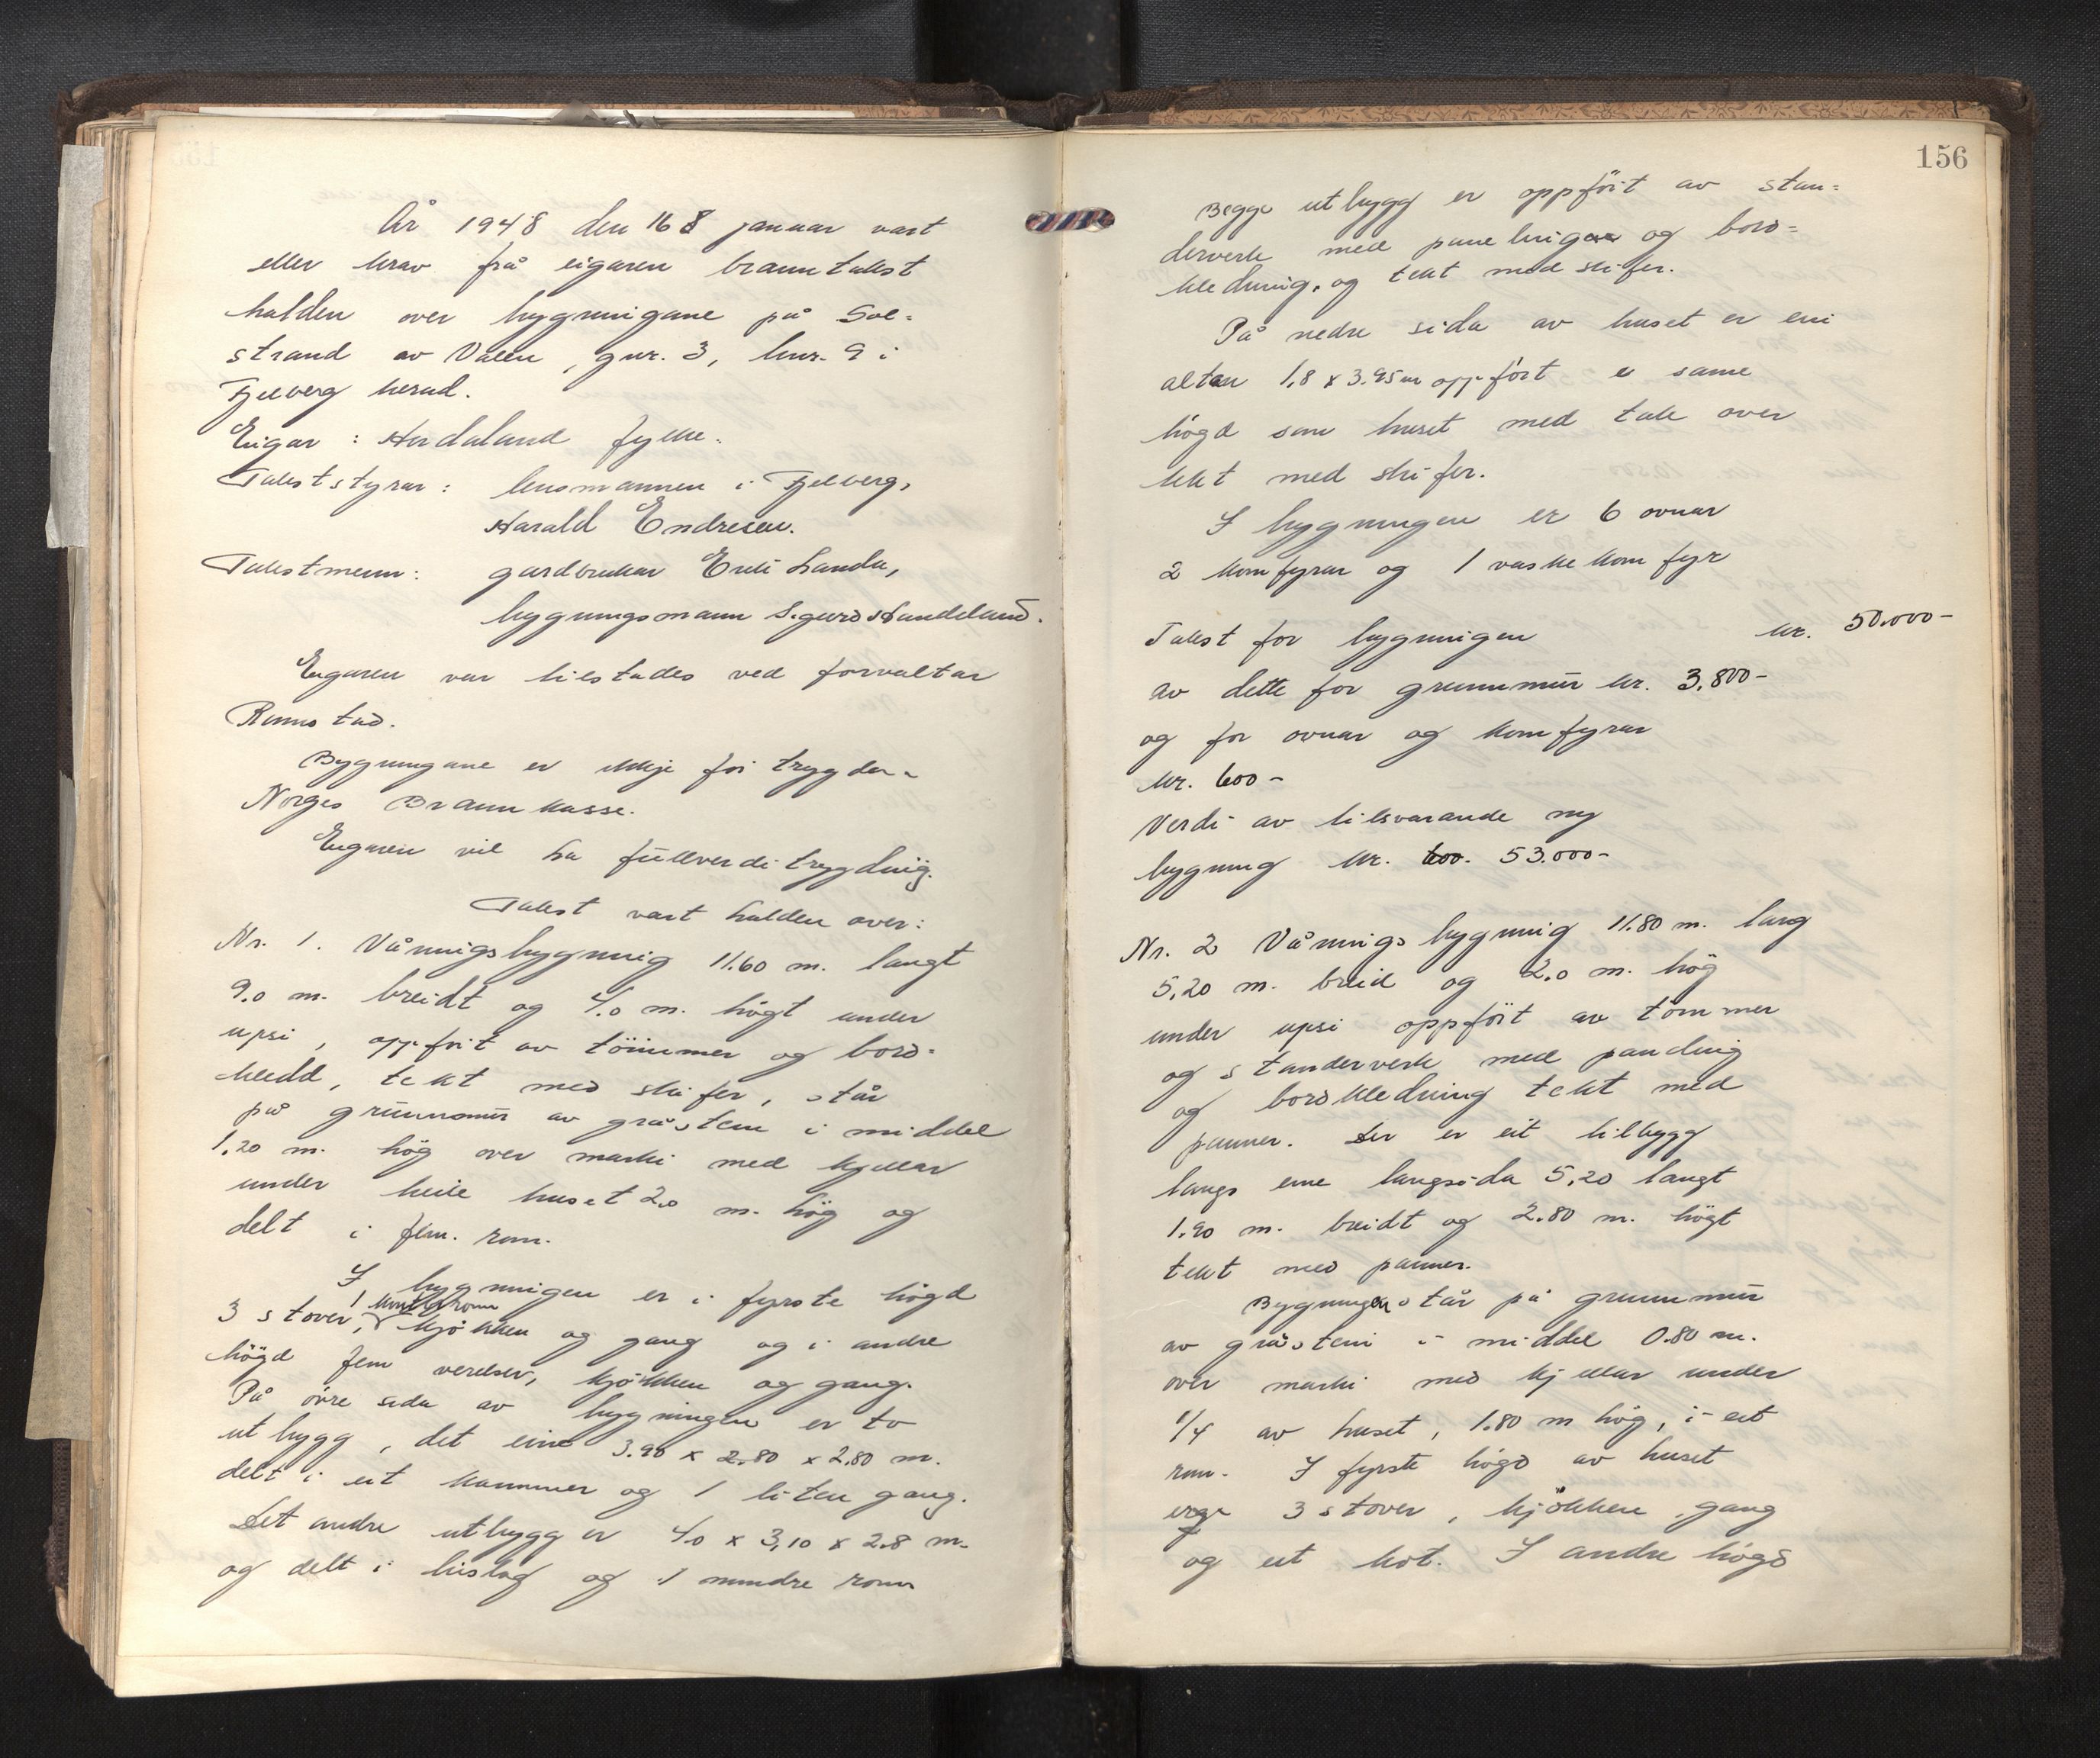 År 1948 den 16 januar vart
etter krav frå eigaren branntakst
halden over bygningane på Sol=
strand av Valen, gnr. 3, bnr. 9 i
Fjelberg herad.
Eigar: Hordaland fylke.
Takststyrar: lensmannen i Fjelberg,
Harald Endresen.
Takstmenn: gardbrukar Erik Landa,
bygningsmann Sigurd Handeland.
Eigaren var tilstades ved forvaltar
Rennstad.
Bygningane er ikkje för trygda i
Norges Brannkasse.
Eigaren vil ha fullverditrygding.
Takst vart halden over:
Nr. 1. Våningsbygning 11.60 m. langt
9.0 m. breidt og 4.0 m. högt under
upsi, oppfört av tömmer og bord-
kledd, tekt med skifer, står
på grunnmur av gråstein i middel
1,20 m. høg over marki med kjellar
under heile huset 2.0 m. hög og
delt i fem rom.
I bygningen er i fyrste högd
3 stover, 1 kontorrom kjökken og gang og i andre
högd fem verelser, kjökken og gang.
På övre sida av bygningen er to
utbygg, det eine 3.90 x 2.80 x 2.80 m.
delt i eit kammer og 1 liten gang.
Det andre utbygg er 4.0 x 3,10 x 2.8 m.
og delt i bislag og 1 mindre rom
156
Begge utbygg er oppfört av stan=
derverk med paneling og bord=
kledning, og tekt med skifer.
På nedre sida av huset er ein
altan 1,8 x 3.95 m oppfört i same
högd som huset med tak over
tekt med skifer.
I bygningen er 6 ovnar
2 komfyrar og 1 vaskekomfyr
Takst for bygningen kr. 50.000-
av dette for grunnmur kr. 3.800-
og for ovnar og komfyrar
kr. 600-
Verdi av tilsvarande ny
bygning kr. 600. 53.000-
Nr. 2 Våningsbygning 11.80 m. lang
5,20 m. breid og 2.0 m. hög
under upsi oppfört av tömmer
og standerverk med panding
og bordkledning tekt med
panner. Der er eit tilbygg
langs eine langsida 5,20 langt
1.90 m. breidt og 2.80 m. högt
tekt med panner.
Bygningen står på grunnmur
av gråstein i middel 0.80 m.
over marki med kjellar under
1/4 av huset, 1.80 m hög, i eit
rom. I fyrste högd av huset
er 3 stover, kjökken, gang
og eit kot. I andre högd